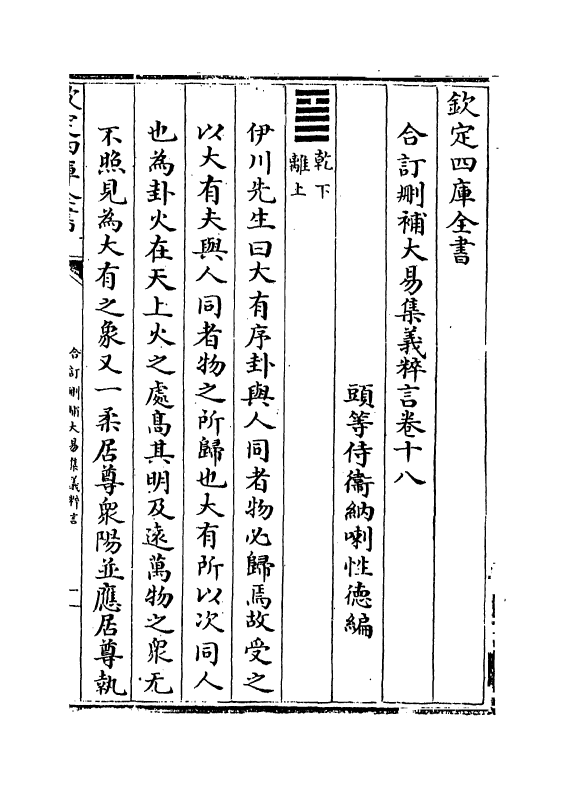 欽定四庫全書
合訂刪補大易集義粹言卷十八
頭等侍衞納喇性德編
乾下
離上
伊川先生曰大有序卦與人同者物必歸焉故受之
以大有夫與人同者物之所歸也大有所以次同人
也為卦火在天上火之處髙其明及逺萬物之衆无
不照見為大有之象又一柔居尊衆陽並應居尊執
欽定四庫全書
合訂刪補大易集義粹言
一